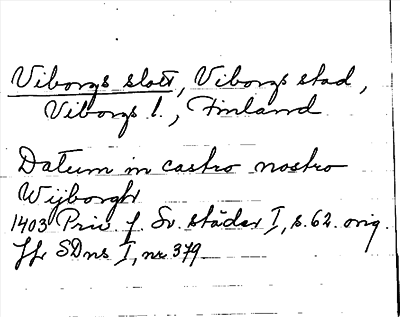 Viborgs slott, Viborgs stad,
Viborgs l., Finland
Datum in castro nostro
Wijborgh
1403 Priv. f. Sv. städer I, s. 62. orig.
Jfr SDns I, nr 379